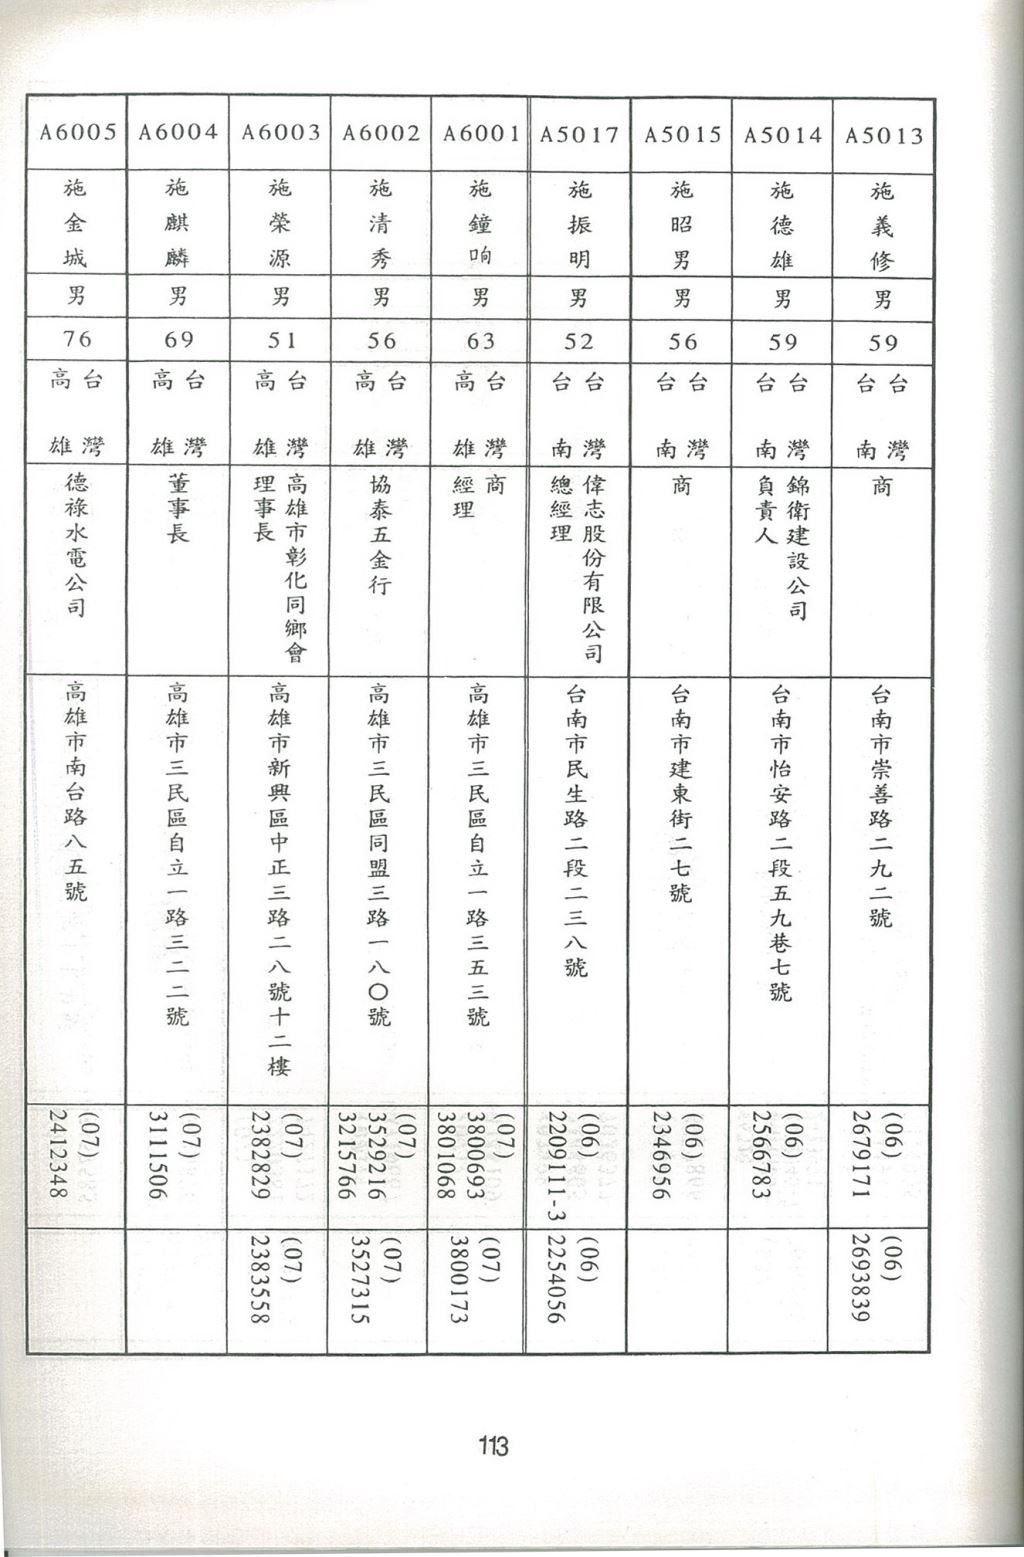 A5013
施義修
男
59
台灣
台南
商
台南市崇善路二九二號
(06)
2679171
(06)
2693839
A5014
施德雄
男
59
台灣
台南
錦衛建設公司
負責人
台南市怡安路二段五九巷七號
(06)
2566783
A5015
施昭男
男
56
台灣
台南
商
台南市建東街二七號
(06)
2346956
A5017
施振明
男
52
台灣
台南
偉志股份有限公司
總經理
台南市民生路二段二三八號
(06)
2209111-3
(06)
2254056
A6001
施鐘响
男
63
台灣
高雄
商
經理
高雄市三民區自立一路三五三號
(07)
3800693
3801068
(07)
3800173
A6002
施清秀
男
56
台灣
高雄
協泰五金行
高雄市三民區同盟三路一八〇號
(07)
3529216
3215766
(07)
3527315
A6003
施榮源
男
51
台灣
高雄
高雄市彰化同鄉會
理事長
高雄市新興區中正三路二八號十二樓
(07)
2382829
(07)
2383558
A6004
施麒麟
男
69
台灣
高雄
董事長
高雄市三民區自立一路三二二號
(07)
3111506
A6005
施金城
男
76
台灣
高雄
德祿水電公司
高雄市南台路八五號
(07)
2412348
113